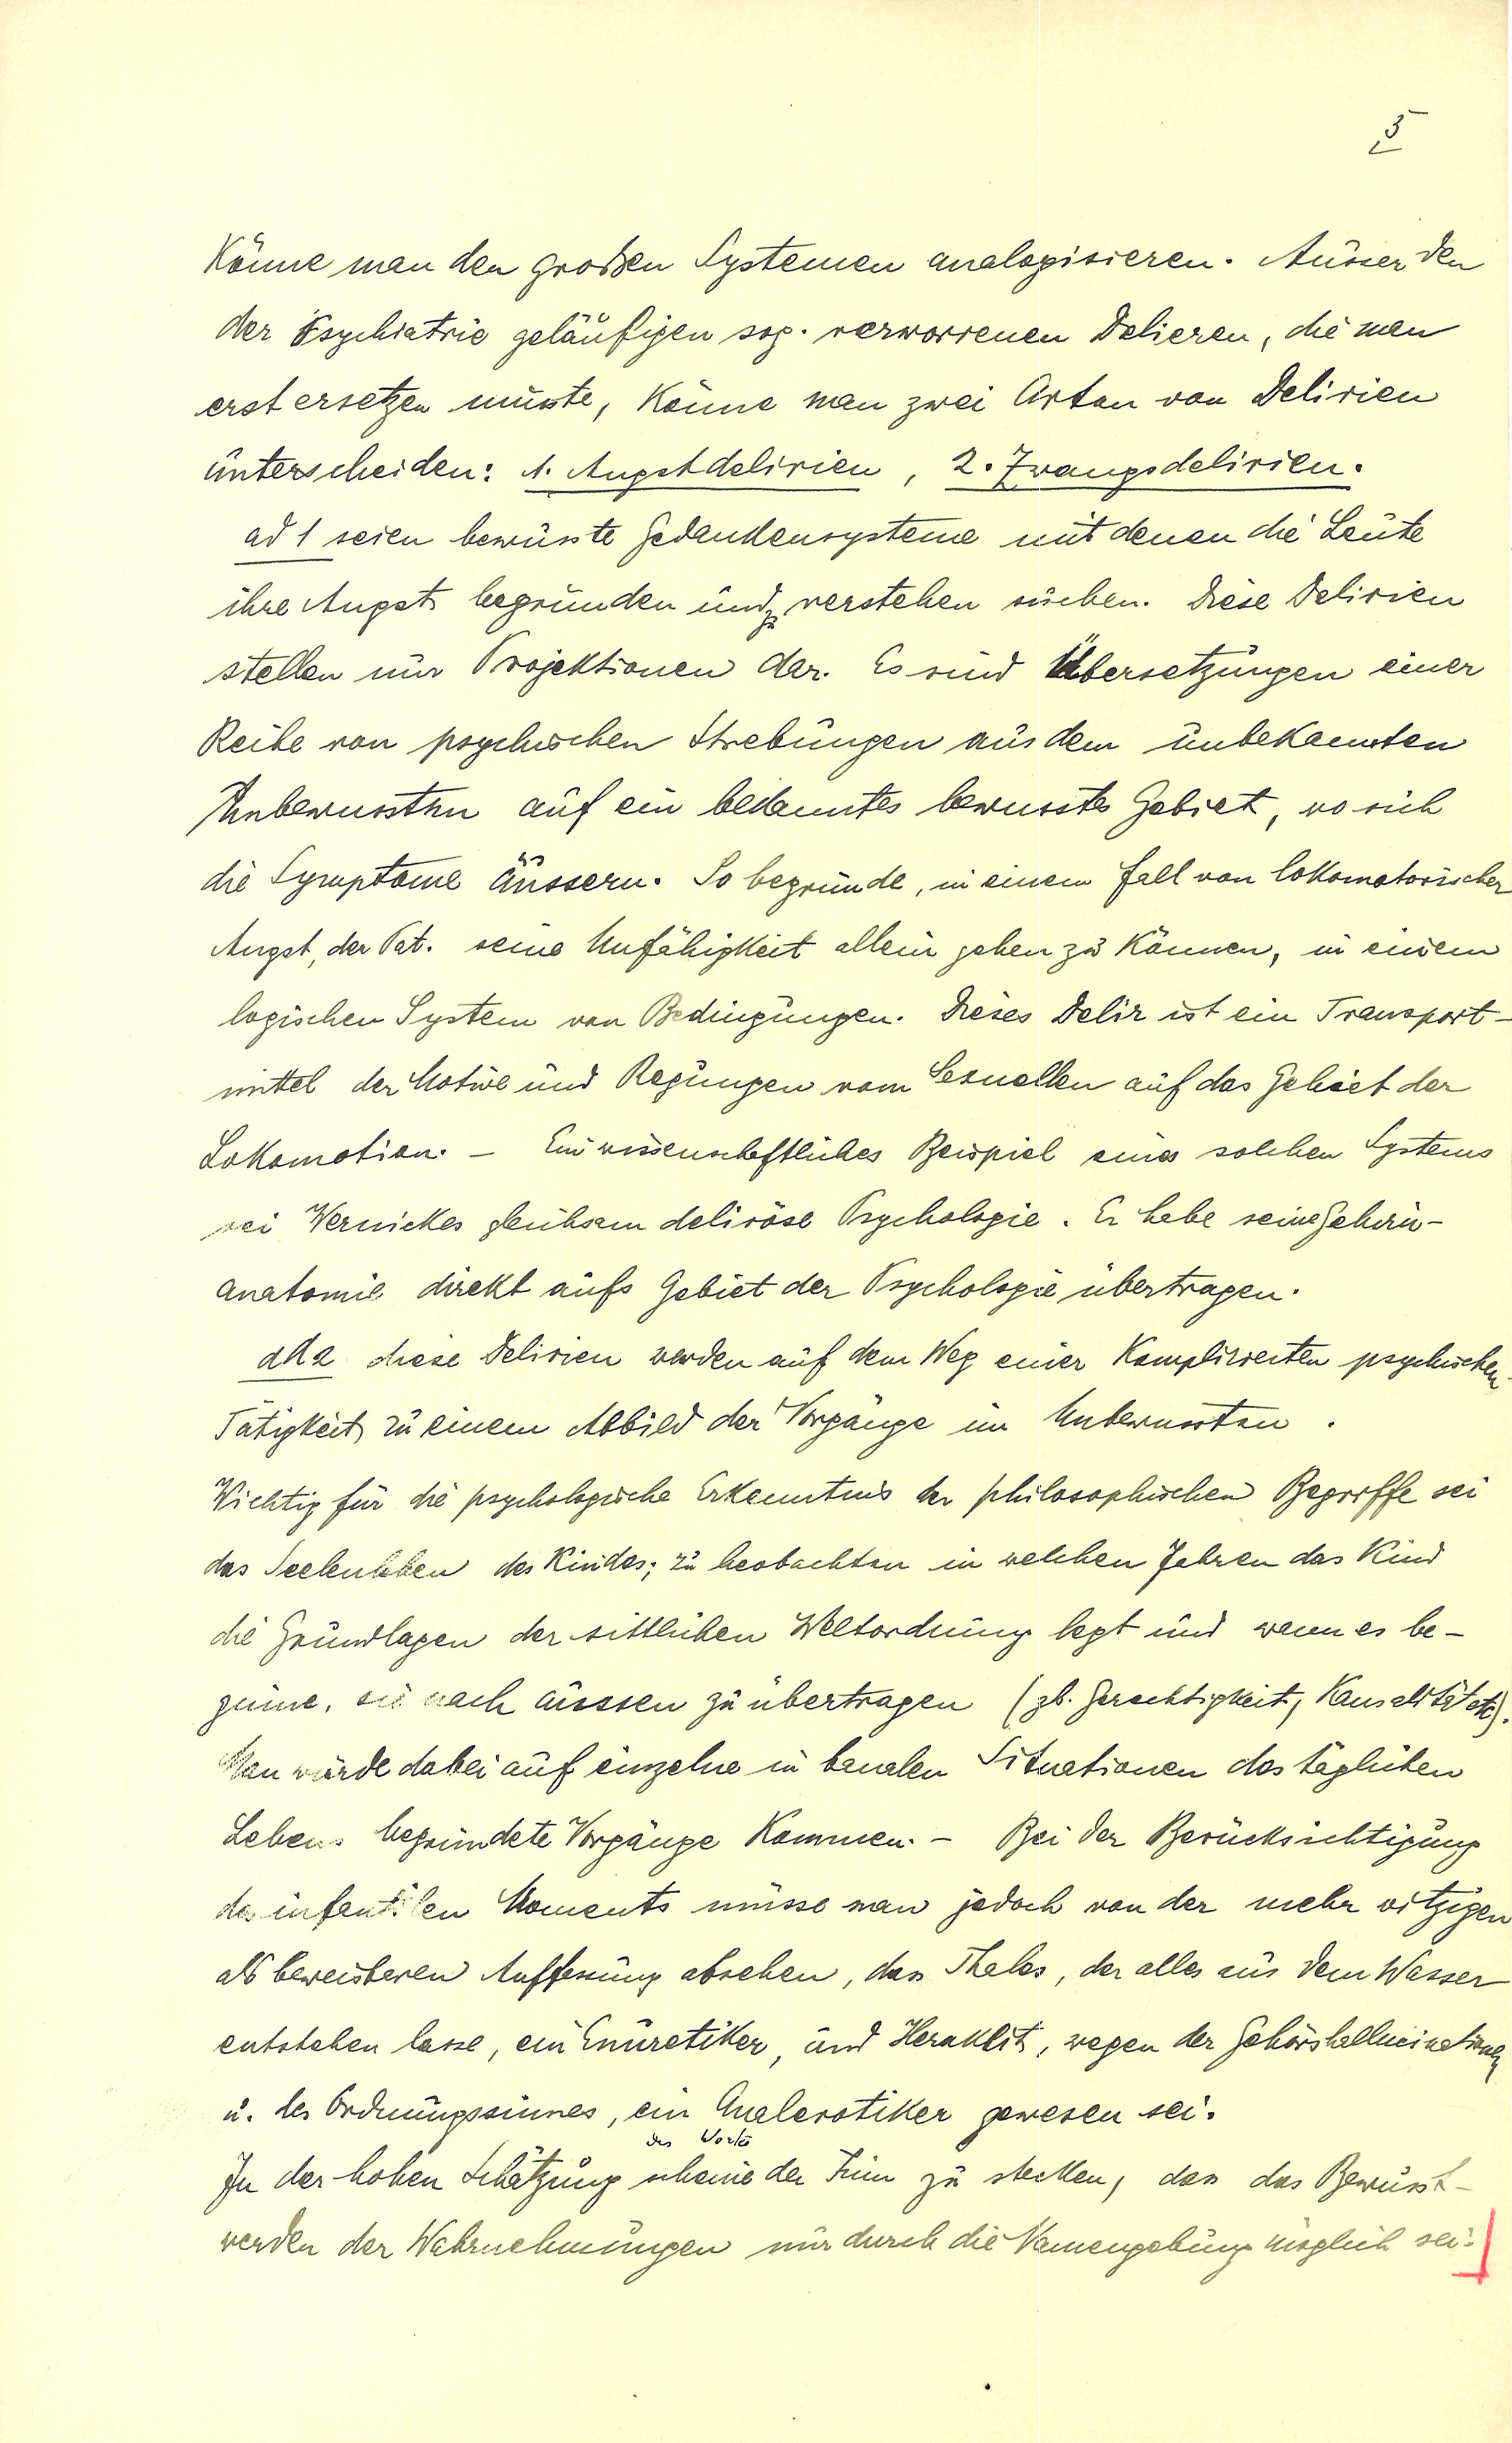 5
Könne man den großen Systemen analogisieren. Ausser den
der Psychiatrie geläufigen sog. verworrenen Delieren, die man
erst ersetzen müsste, könne man zwei Arten von Delirien
unterscheiden: 1. Angstdelirien, 2. Zwangsdelirien.
ad 1 seien bewusste Gedankensysteme mit denen die Leute
ihre Angst begründen und zu verstehen suchen. Diese Delirien
stellen nur Projektionen dar. Es sind Übersetzungen einer
Reihe von psychischen Strebungen aus dem unbekannten
Unbewussten auf ein bekanntes bewusstes Gebiet, wo sich
die Symptome äussern. So begründe, in einem Fall von lokomotorischer
Angst, der Pat. seine Unfähigkeit allein gehen zu können, in einem
logischen System von Bedingungen. Dieses Delir ist ein Transport-
mittel der Motive und Regungen vom Sexuellen auf das Gebiet der
Lokomotion. – Ein wissenschaftliches Beispiel eines solchen Systems
sei Wernickes gleichsam deliröse Psychologie. Er habe seine Gehirn-
anatomie direkt aufs Gebiet der Psychologie übertragen.
ad 2 diese Delirien werden auf dem Weg einer komplizierten psychischen
Tätigkeit zu einem Abbild der Vorgänge im Unbewussten.
Wichtig für die psychologische Erkenntnis der philosophischen Begriffe sei
das Seelenleben des Kindes; zu beobachten in welchen Jahren das Kind
die Grundlagen der sittlichen Weltordnung legt und wenn es be-
ginne, sie nach aussen zu übertragen (zb. Gerechtigkeit, Kausalität etc).
Man würde dabei auf einzelne in banalen Situationen des täglichen
Lebens begründete Vorgänge kommen. – Bei der Berücksichtigung
des infantilen Moments müsse man jedoch von der mehr witzigen
als beweisbaren Auffassung absehen, dass Thales, der alles aus dem Wasser
entstehen lasse, ein Enuretiker, und Heraklit, wegen der Gehörshallucinationen
u. des Ordnungssinnes, ein Analerotiker gewesen sei.
des Wortes
In der hohen Schätzung scheine der Sinn zu stecken, dass das Bewusst-
werden der Wahrnehmungen nur durch die Namengebung möglich sei.